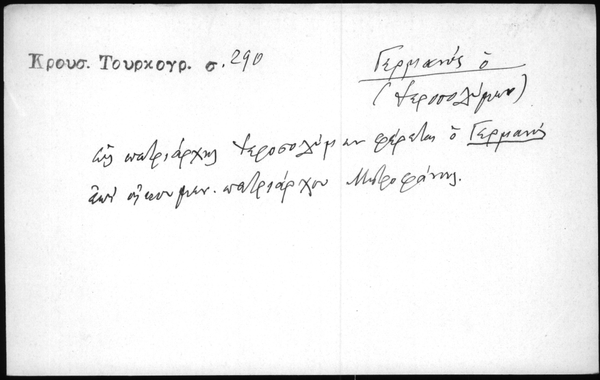 Κρουσ. Τουρκογρ. σ. 290
Γερμανός ὁ
(Ἱεροσολύμων)
ὡς πατριάρχης Ἱεροσολύμων φέρεται ὁ Γερμανός
ἐπὶ οἰκουμεν. πατριάρχου Μητροφάνης.